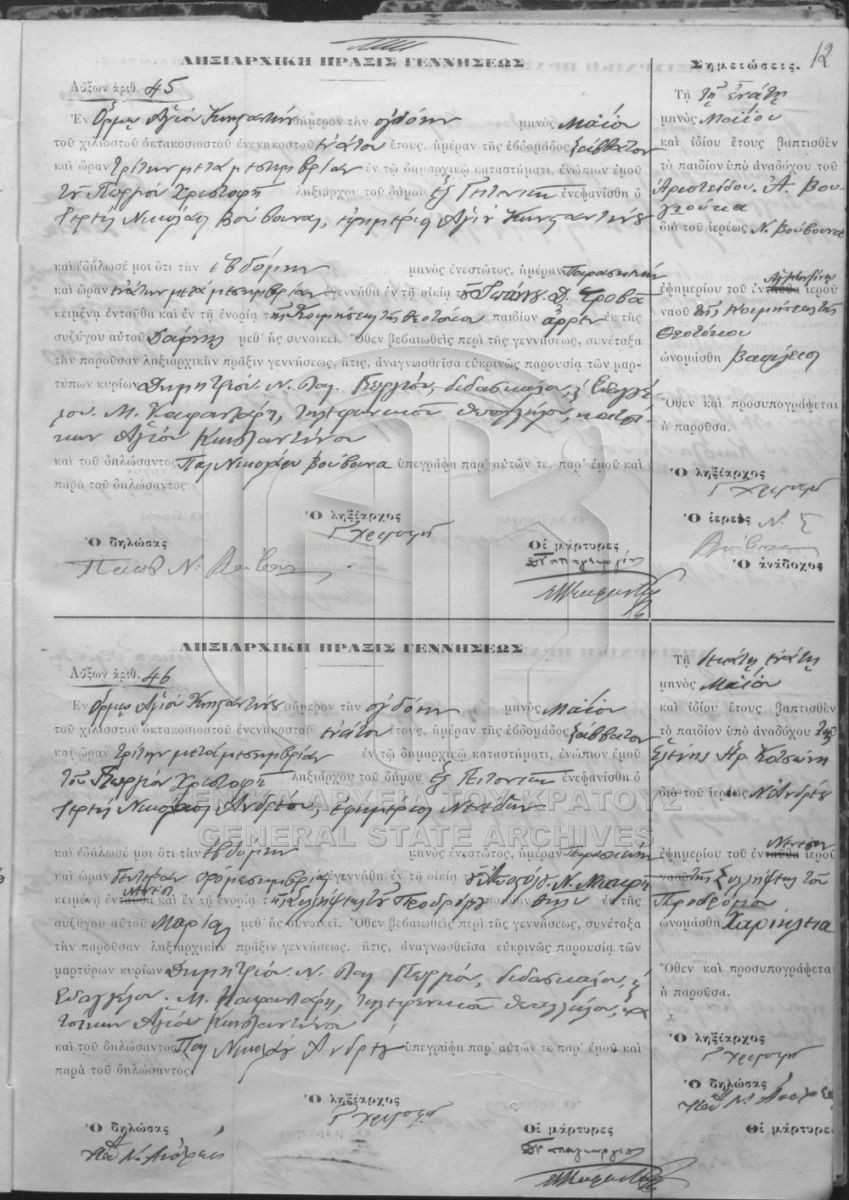 12
ΛΗΞΙΑΡΧΙΚΗ ΠΡΑΞΙΣ ΓΕΝΝΗΣΕΩΣ
Αὔξων ἀριθ. 45
Ἐν Ὅρμῳ Ἁγίου Κωνσταντίνου σήμερον τὴν ὀγδόην μηνὸς Μαΐου
τοῦ χιλιοστοῦ ὀκτακοσιοστοῦ ἐνενηκοστοῦ ἐνάτου ἔτους, ἡμέραν τῆς ἑβδομάδος Σάββατον
καὶ ὥραν τρίτην μετὰ μεσημβρίαν ἐν τῷ δημαρχικῷ καταστήματι, ἐνώπιον ἐμοῦ
τοῦ Γεωργίου Χριστοφῆ ληξιάρχου τοῦ δήμου ἐνεφανίσθη ὁ
Ἱερεὺς Νικόλαος Βούβουνας, ἐφημέριος Ἁγίου Κωνσταντίνου
καὶ ἐδήλωσέ μοι ὅτι τὴν ἑβδόμην μηνὸς ἐνεστῶτος, ἡμέραν Παρασκευὴν
καὶ ὥραν ἐνάτην μετὰ μεσημβρίαν ἐγεννήθη ἐν τῇ οἰκίᾳ τοῦ Ἰωάνν. Δ.
κειμένῃ ἐνταῦθα καὶ ἐν τῇ ἐνορίᾳ τῆς Κοιμήσεως τῆς Θεοτόκου παιδίον ἄρρεν ἐκ τῆς
συζύγου αὐτοῦ μεθ᾽ ἧς συνοικεῖ. Ὅθεν βεβαιωθεὶς περὶ τῆς γεννήσεως, συνέταξα
τὴν παροῦσαν ληξιαρχικὴν πρᾶξιν γεννήσεως, ἥτις, ἀναγνωσθεῖσα εὐκρινῶς παρουσίᾳ τῶν μαρ-
τύρων κυρίων Δημητρίου Ν. Παπ Γεωργίου, διδασκάλου, καὶ Εὐαγγέ-
λου Μ. Καφαντάρη, τηλεφωνικοῦ ὑπαλλήλου, κατοί-
κων Ἁγίου Κωνσταντίνου
καὶ τοῦ δηλώσαντος Παπ Νικολάου Βούβουνα ὑπεγράφη παρ᾽ αὐτῶν τε, παρ᾽ ἐμοῦ καὶ
παρὰ τοῦ δηλώσαντος.
Ὁ ληξίαρχος
Ὁ δηλώσας
Οἱ μάρτυρες
Σημειώσεις.
Τῇ ἐνάτῃ
μηνὸς Μαΐου
καὶ ἰδίου ἔτους βαπτισθὲν
τὸ παιδίον ὑπὸ ἀναδόχου τοῦ
Ἀριστείδου Α.
διὰ τοῦ ἱερέως Ν. Βούβουνα
ἐφημερίου τοῦ ἐνταῦθα ἱεροῦ
ναοῦ τῆς Κοιμήσεως τῆς
Θεοτόκου
ὠνομάσθη Βασίλειος
Ὅθεν καὶ προσυπογράφεται
ἡ παροῦσα.
Ὁ ληξίαρχος
Ὁ ἱερεὺς
Ὁ ἀνάδοχος
ΛΗΞΙΑΡΧΙΚΗ ΠΡΑΞΙΣ ΓΕΝΝΗΣΕΩΣ
Αὔξων ἀριθ. 46
Ἐν Ὅρμῳ Ἁγίου Κωνσταντίνου σήμερον τὴν ὀγδόην μηνὸς Μαΐου
τοῦ χιλιοστοῦ ὀκτακοσιοστοῦ ἐνενηκοστοῦ ἐνάτου ἔτους, ἡμέραν τῆς ἑβδομάδος Σάββατον
καὶ ὥραν τρίτην μετὰ μεσημβρίαν ἐν τῷ δημαρχικῷ καταστήματι, ἐνώπιον ἐμοῦ
τοῦ Γεωργίου Χριστοφῆ ληξιάρχου τοῦ δήμου ἐνεφανίσθη ὁ
Ἱερεὺς Νικόλαος Ἀνδρέου, ἐφημέριος
ΓΕΝΙΚΑ ΑΡΧΕΙΑ ΤΟΥ ΚΡΑΤΟΥΣ
GENERAL STATE ARCHIVES
καὶ ἐδήλωσέ μοι ὅτι τὴν ἑβδόμην μηνὸς ἐνεστῶτος, ἡμέραν Παρασκευὴν
καὶ ὥραν προμεσημβρίας ἐγεννήθη ἐν τῇ οἰκίᾳ
κειμένῃ ἐνταῦθα καὶ ἐν τῇ ἐνορίᾳ τῆς Συλλήψεως τοῦ Προδρόμου παιδίον θῆλυ ἐκ τῆς
συζύγου αὐτοῦ Μαρίας μεθ᾽ ἧς συνοικεῖ. Ὅθεν βεβαιωθεὶς περὶ τῆς γεννήσεως, συνέταξα
τὴν παροῦσαν ληξιαρχικὴν πρᾶξιν γεννήσεως. ἥτις, ἀναγνωσθεῖσα εὐκρινῶς παρουσίᾳ τῶν
μαρτύρων κυρίων Δημητρίου Ν. Παπ Γεωργίου, διδασκάλου, καὶ
Εὐαγγέλου Μ. Καφαντάρη, τηλεφωνικοῦ ὑπαλλήλου, κα
τοίκων Ἁγίου Κωνσταντίνου
καὶ τοῦ δηλώσαντος Παπ Νικολάου Ἀνδρέου ὑπεγράφη παρ᾽ αὐτῶν τε παρ᾽ ἐμοῦ καὶ
παρὰ τοῦ δηλώσαντος.
Ὁ ληξίαρχος
Ὁ δηλώσας
Οἱ μάρτυρες
Τῇ δεκάτῃ ἐνάτῃ
μηνὸς Μαΐου
καὶ ἰδίου ἔτους βαπτισθὲν
τὸ παιδίον ὑπὸ ἀναδόχου τῆς
Ἑλένης
διὰ τοῦ ἱερέως Ν. Ἀνδρέου
ἐφημερίου τοῦ ἐνταῦθα ἱεροῦ
ναοῦ τῆς Συλλήψεως τοῦ
Προδρόμου
ὠνομάσθη Χαρίκλεια
Ὅθεν καὶ προσυπογράφεται
ἡ παροῦσα.
Ὁ ληξίαρχος
Ὁ δηλώσας
Οἱ μάρτυρες